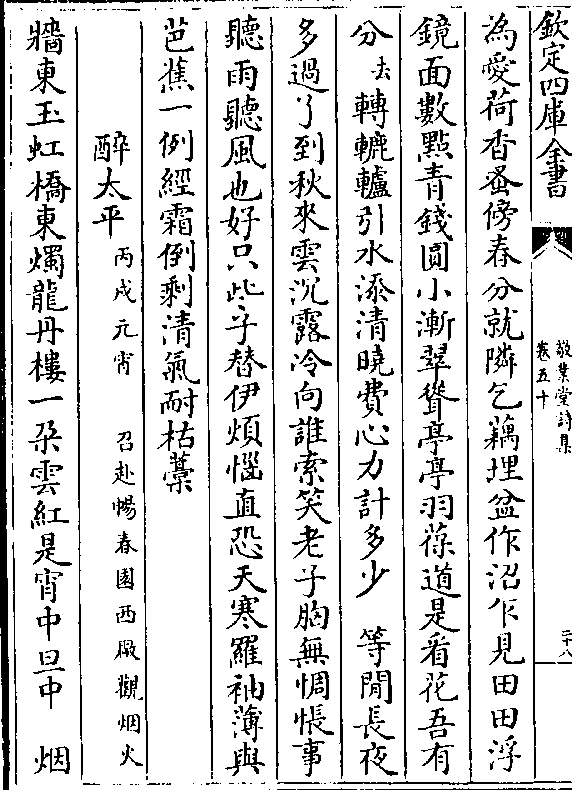 欽定四庫全書
敬業堂詩集
卷五十
二十八
為愛荷香蚤傍春分就隣乞藕埋盆作沼乍見田田浮
鏡面數點青錢圓小漸翠聳亭亭羽葆道是看花吾有
分去轉轆轤引水添清曉費心力計多少　等閒長夜
多過了到秋來雲沉露冷向誰索笑老子胸無惆悵事
聽雨聽風也好只些子替伊煩惱直恐天寒羅袖薄與
芭蕉一例經霜倒剩清氣耐枯藳
醉太平丙戌元宵　召赴暢春園西厰觀烟火
牆東玉虹橋東燭龍丹樓一朶雲紅是宵中旦中　烟